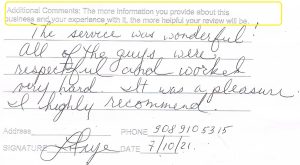 Additional Comments: The more information you provide about this
business and your experience with it, the more helpful your review will be.
The service was wonderful!
All of the guys were
respectful and worked
very hard. It was a pleasure.
I highly recommend.
Address
PHONE 908 910 5315
SIGNATURE
DATE 7/10/21.